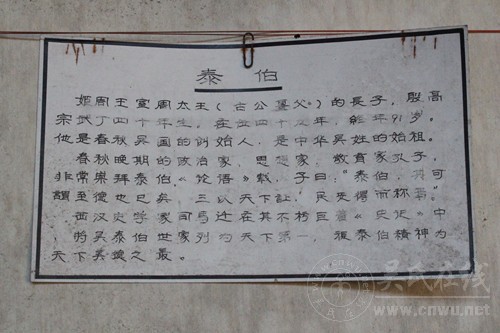 泰伯
姬周王室周太王（古公亶父）的長子，殷高
宗武丁四十年生，在 四十 年， 年91岁。
他是春秋吴国的創始人，是中华吴姓的始祖。
春秋晚期的政治家、思想家、教育家孔子，
非常崇拜泰伯，《论语》载，子曰：“泰伯，其可
謂至德也已矣，三以天下讓，民无得而称焉。”
西汉史学家司馬迁在其 巨著《史记》中
将吴泰伯世家列为天下第一， 泰伯精神为
天下美德之最。
吴氏在线
www.cnwu.net